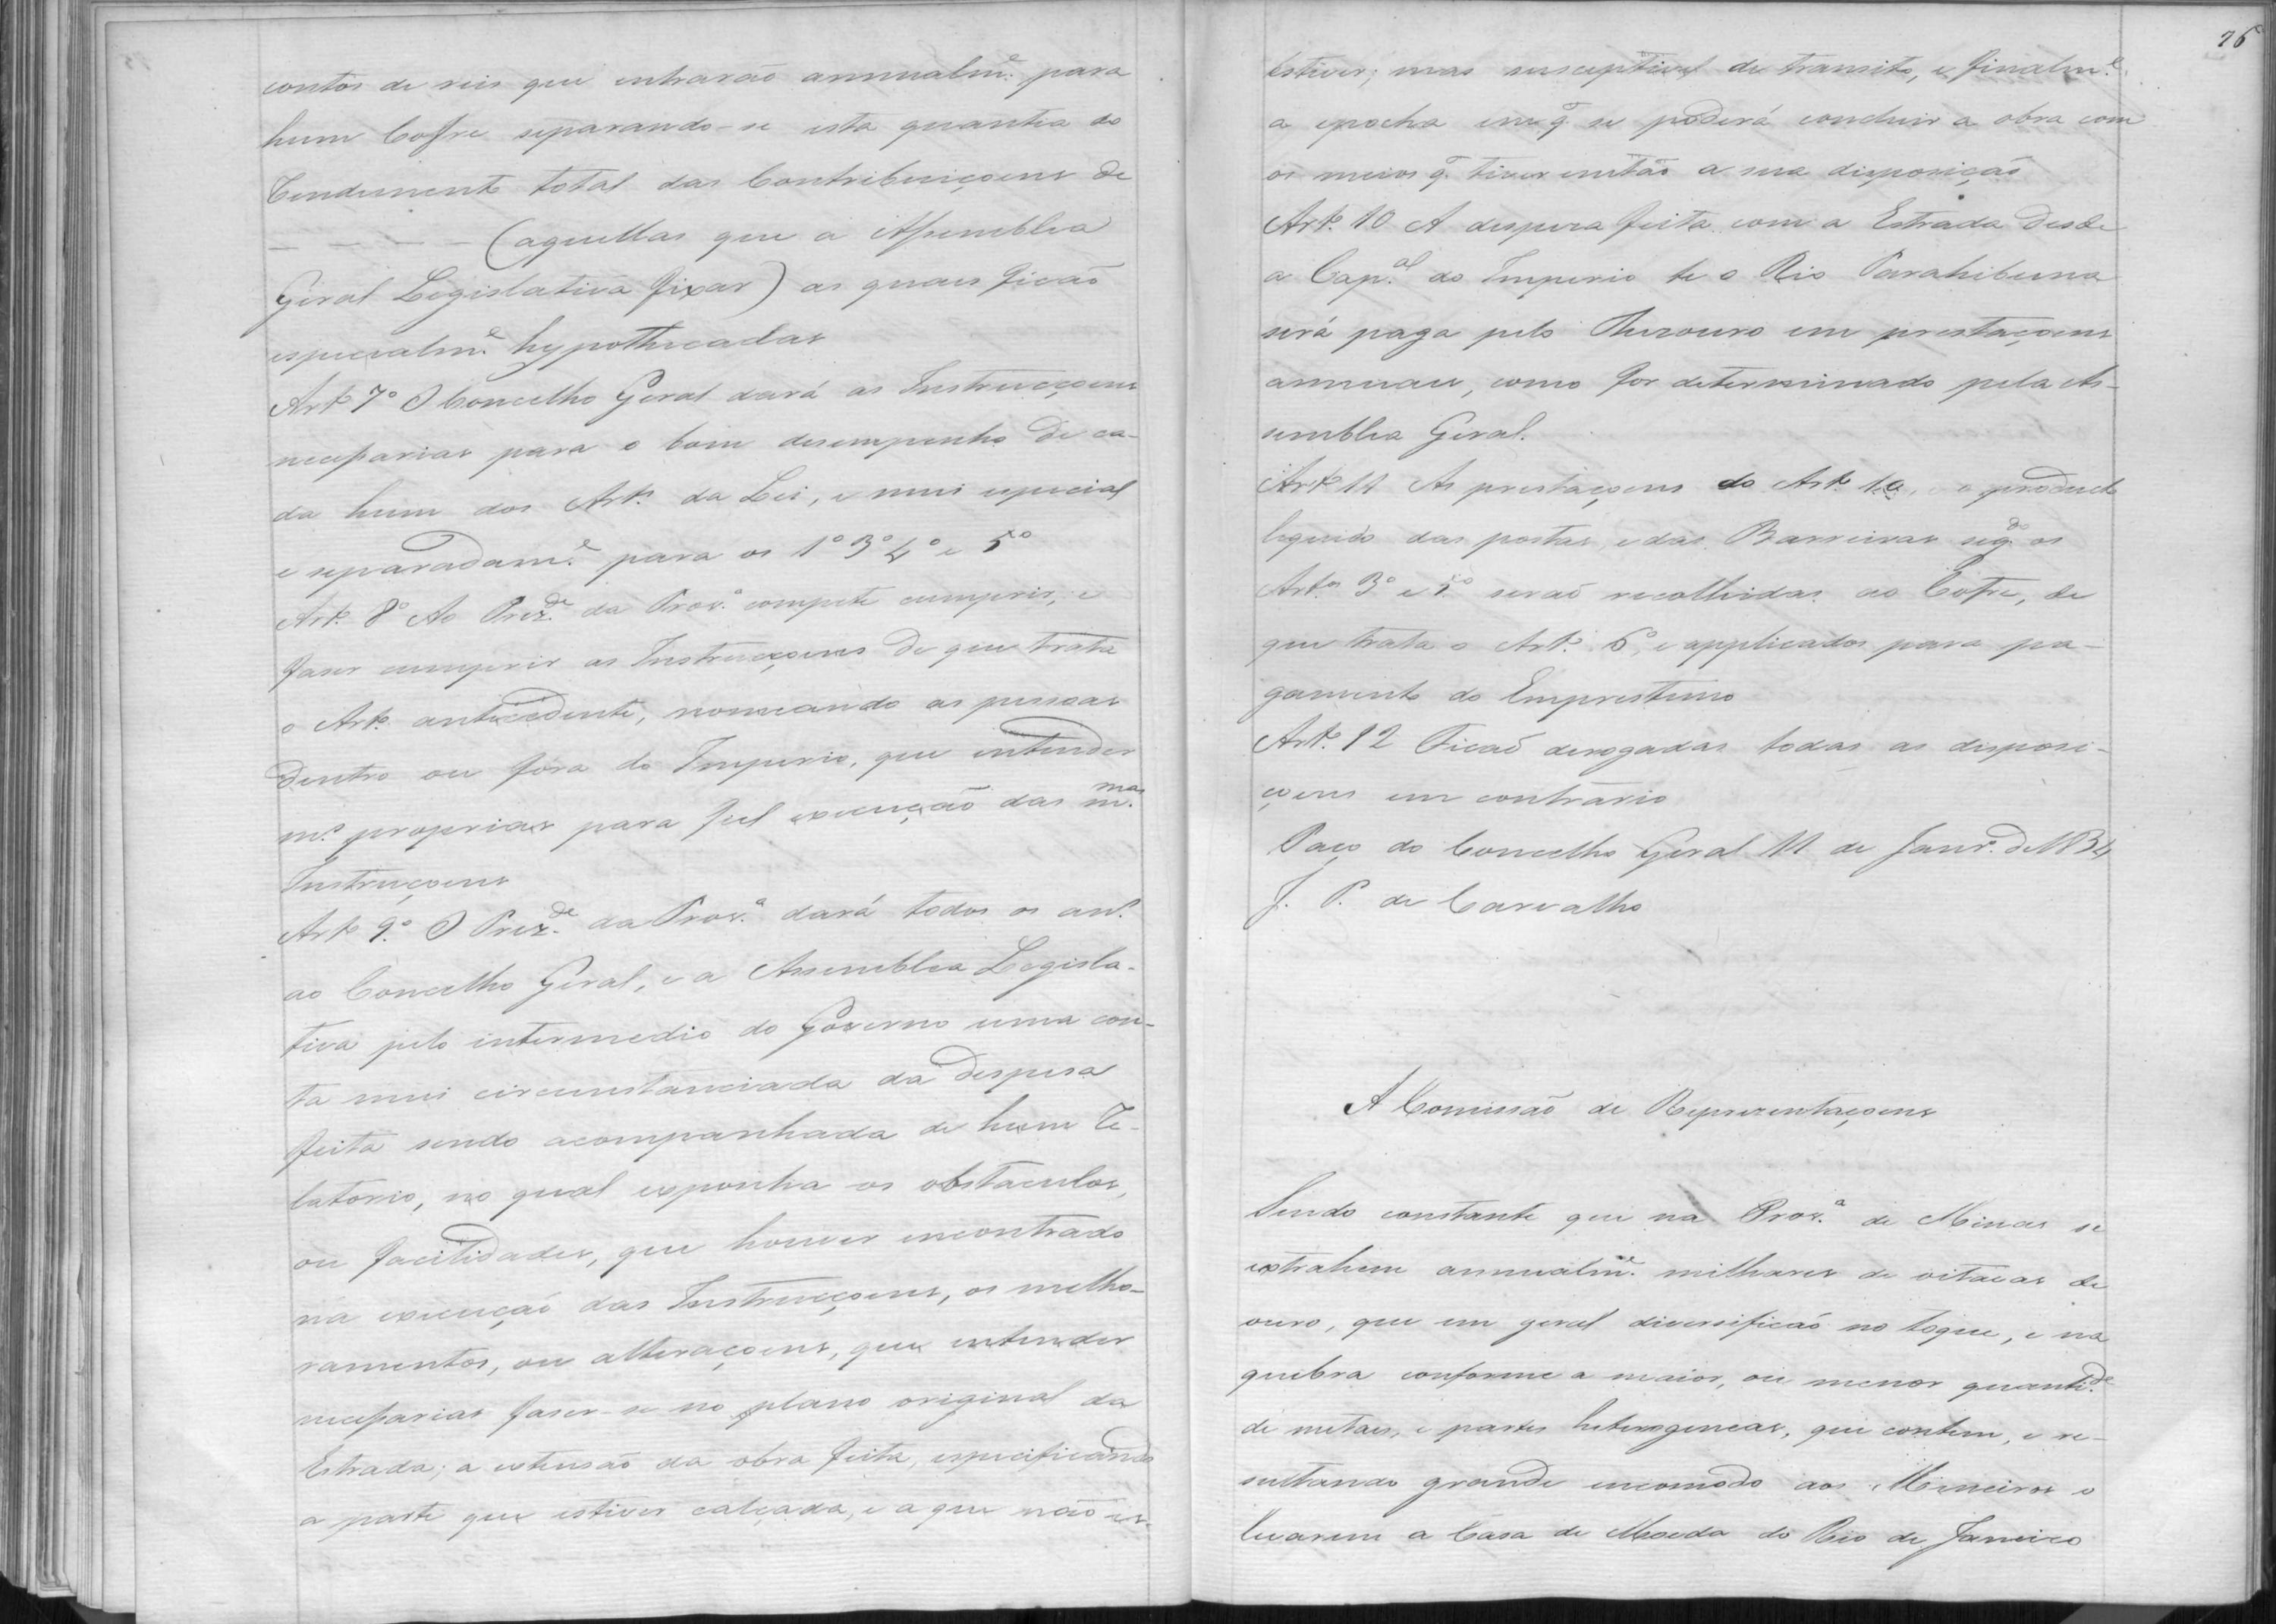 contos de reis que entrarão annualm.e para
hum Cofre separando-se esta quantia do
Rendimento total das Contribuiçoens de
— — — — (aquellas que a Assemblea
Geral Legislativa fixar) as quaes ficão
especialm.e hypothecadas
Art.º 7º O Concelho Geral dará as Instrucçoens
necessarias para o bom desempenho de ca-
da hum dos Art.os da Lei, e mui especial
e separadam.e para os 1º 3º 4º e 5º
Art.º 8º Ao Prez.de da Prov.a compete cumprir, e
faser cumprir as Instrucçoens de que trata
o Art.º antecedente, nomeando as pessoas
dentro ou fora do Imperio, que entender
m.s proprias para fiel execução das m.mas
Instrucçoens
Art.º 9.º O Prez.de da Prov.a dará todos os an.s
ao Concelho Geral, e a Assemblea Legisla-
tiva pelo intermedio do Governo uma con-
ta mui circunstanciada da despesa
feita sendo acompanhada de hum Re-
latorio, no qual exponha os obstaculos,
ou facilidades, que houver encontrado
na execução das Instrucçoens, os melho-
ramentos, ou alteraçoens, que entender
necessarias faser-se no plano original da
Estrada; a extensão da obra feita, especificando
a parte que estiver calçada, e a que não es-
76
estiver; mas susceptivel de transito, e finalm.e
a epocha em q̃ se poderá concluir a obra com
os meios q̃ tiver então a sua disposição
Art.º 10 A despeza feita com a Estrada desde
a Cap.al do Imperio te o Rio Parahibuna
será paga pelo Thezouro em prestaçoens
annuaes, como for determinado pela As-
semblea Geral.
Art.º 11 As prestaçoens do Art.º 10, e o producto
liquido das postas, e das Barreiras seg.do os
Art.os 3º e 5º serão recolhidas ao Cofre, de
que trata o Art.º 6º, e applicados para pa-
gamento do Emprestimo
Art.º 12 Ficaõ derogadas todas as disposi-
çoens em contrario
Paço do Concelho Geral 11 de Janr.º de 1834
J. P. de Carvalho
A Comissão de Reprezentaçoens
Sendo constante que na Prov.a de Minas se
extrahem annualm.e milhares de oitavas de
ouro, que em geral diversificão no toque, e na
quebra conforme a maior, ou menor quantid.e
de metaes, e partes heterogeneas, que contem, e re-
sultando grande encomodo aos Mineiros o
levarem a Casa de Moeda do Rio de Janeiro